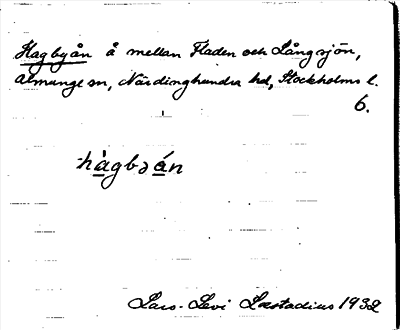 Hagbyån å mellan Fladen och Långsjön,
Almunge sn, Närdinghundra hd, Stockholms l.
6.
hàgbɔán
Lars-Levi Læstadius 1932